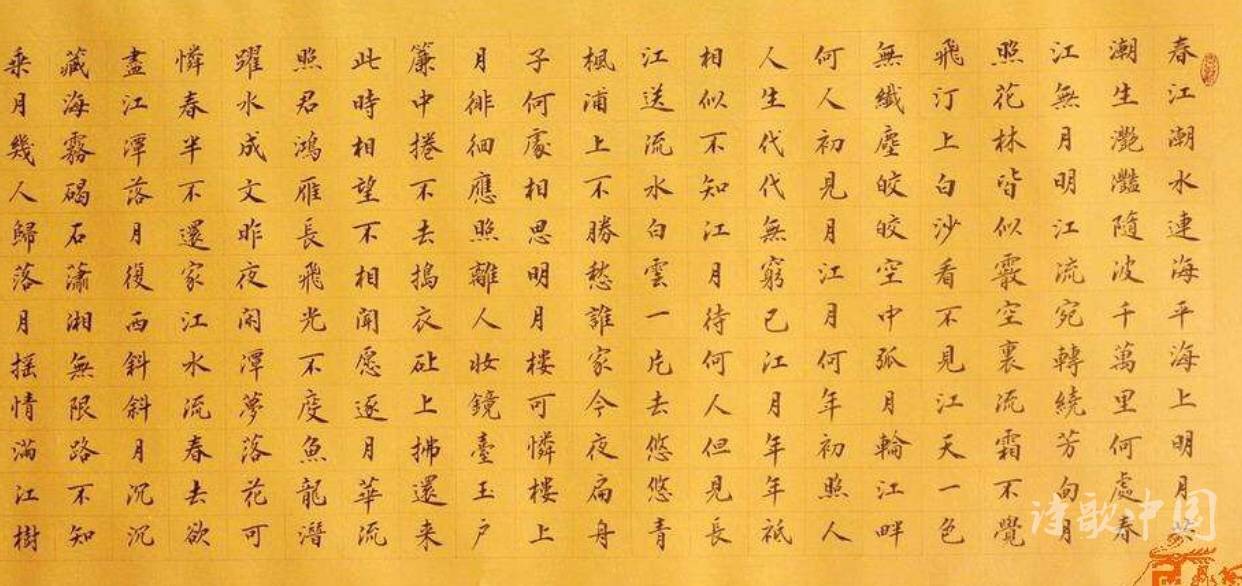 春江潮水連海平海上明月共
潮生灧灩隨波千萬里何處春
江無月明江流宛轉繞芳甸月
照花林皆似霰空裏流霜不覺
飛汀上白沙看不見江天一色
無纖塵皎皎空中孤月輪江畔
何人初見月江月何年初照人
人生代代無窮已江月年年祗
相似不知江月待何人但見長
江送流水白雲一片去悠悠青
楓浦上不勝愁誰家今夜扁舟
子何處相思明月楼可憐樓上
月徘徊應照離人妝鏡臺玉户
簾中捲不去搗衣砧上拂還来
此時相望不相聞愿逐月華流
照君鴻雁長飛光不度魚龍潛
躍水成文昨夜閑潭夢落花可
憐春半不還家江水流春去欲
盡江潭落月復西斜斜月沉沉
藏海霧碣石瀟湘無限路不知
乘月幾人歸落月摇情滿江樹
诗歌中国